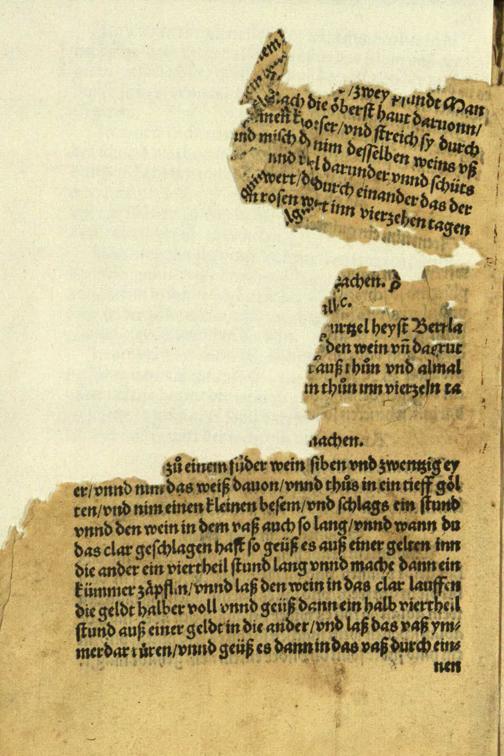 /zwey pfundt Man
ach die öberst haut daruonn/
ser/vnd streich sy durch
vnd misch nim desselben weins vß
vnd darunder vnnd schüts
wert/ durch einander das der
n rosen inn vierzehen tagen
machen.
c.
urtzel heyst Bertla
den wein vn̄ das rut
auß thůn vnd almal
in thůn inn vierzeln ta
machen.
zů einem füder wein siben vnd zwentzig ey
er/vnnd nim das weiß dauon/vnnd thůs in ein tieff göl
ten/vnd nim einen kleinen besem/vnd schlags ein stund
vnnd den wein in dem vaß auch so lang/vnnd wann du
das clar geschlagen hast so geüß es auß einer gelten inn
die ander ein viertheil stund lang vnnd mache dann ein
kümmer zäpflin/vnnd laß den wein in das clar lauffen
die geldt halber voll vnnd geüß dann ein halb viertheil
stund auß einer geldt in die ander/vnd laß das vaß ym-
merdar rüren/vnnd geüß es dann in das vaß durch ein-
nen